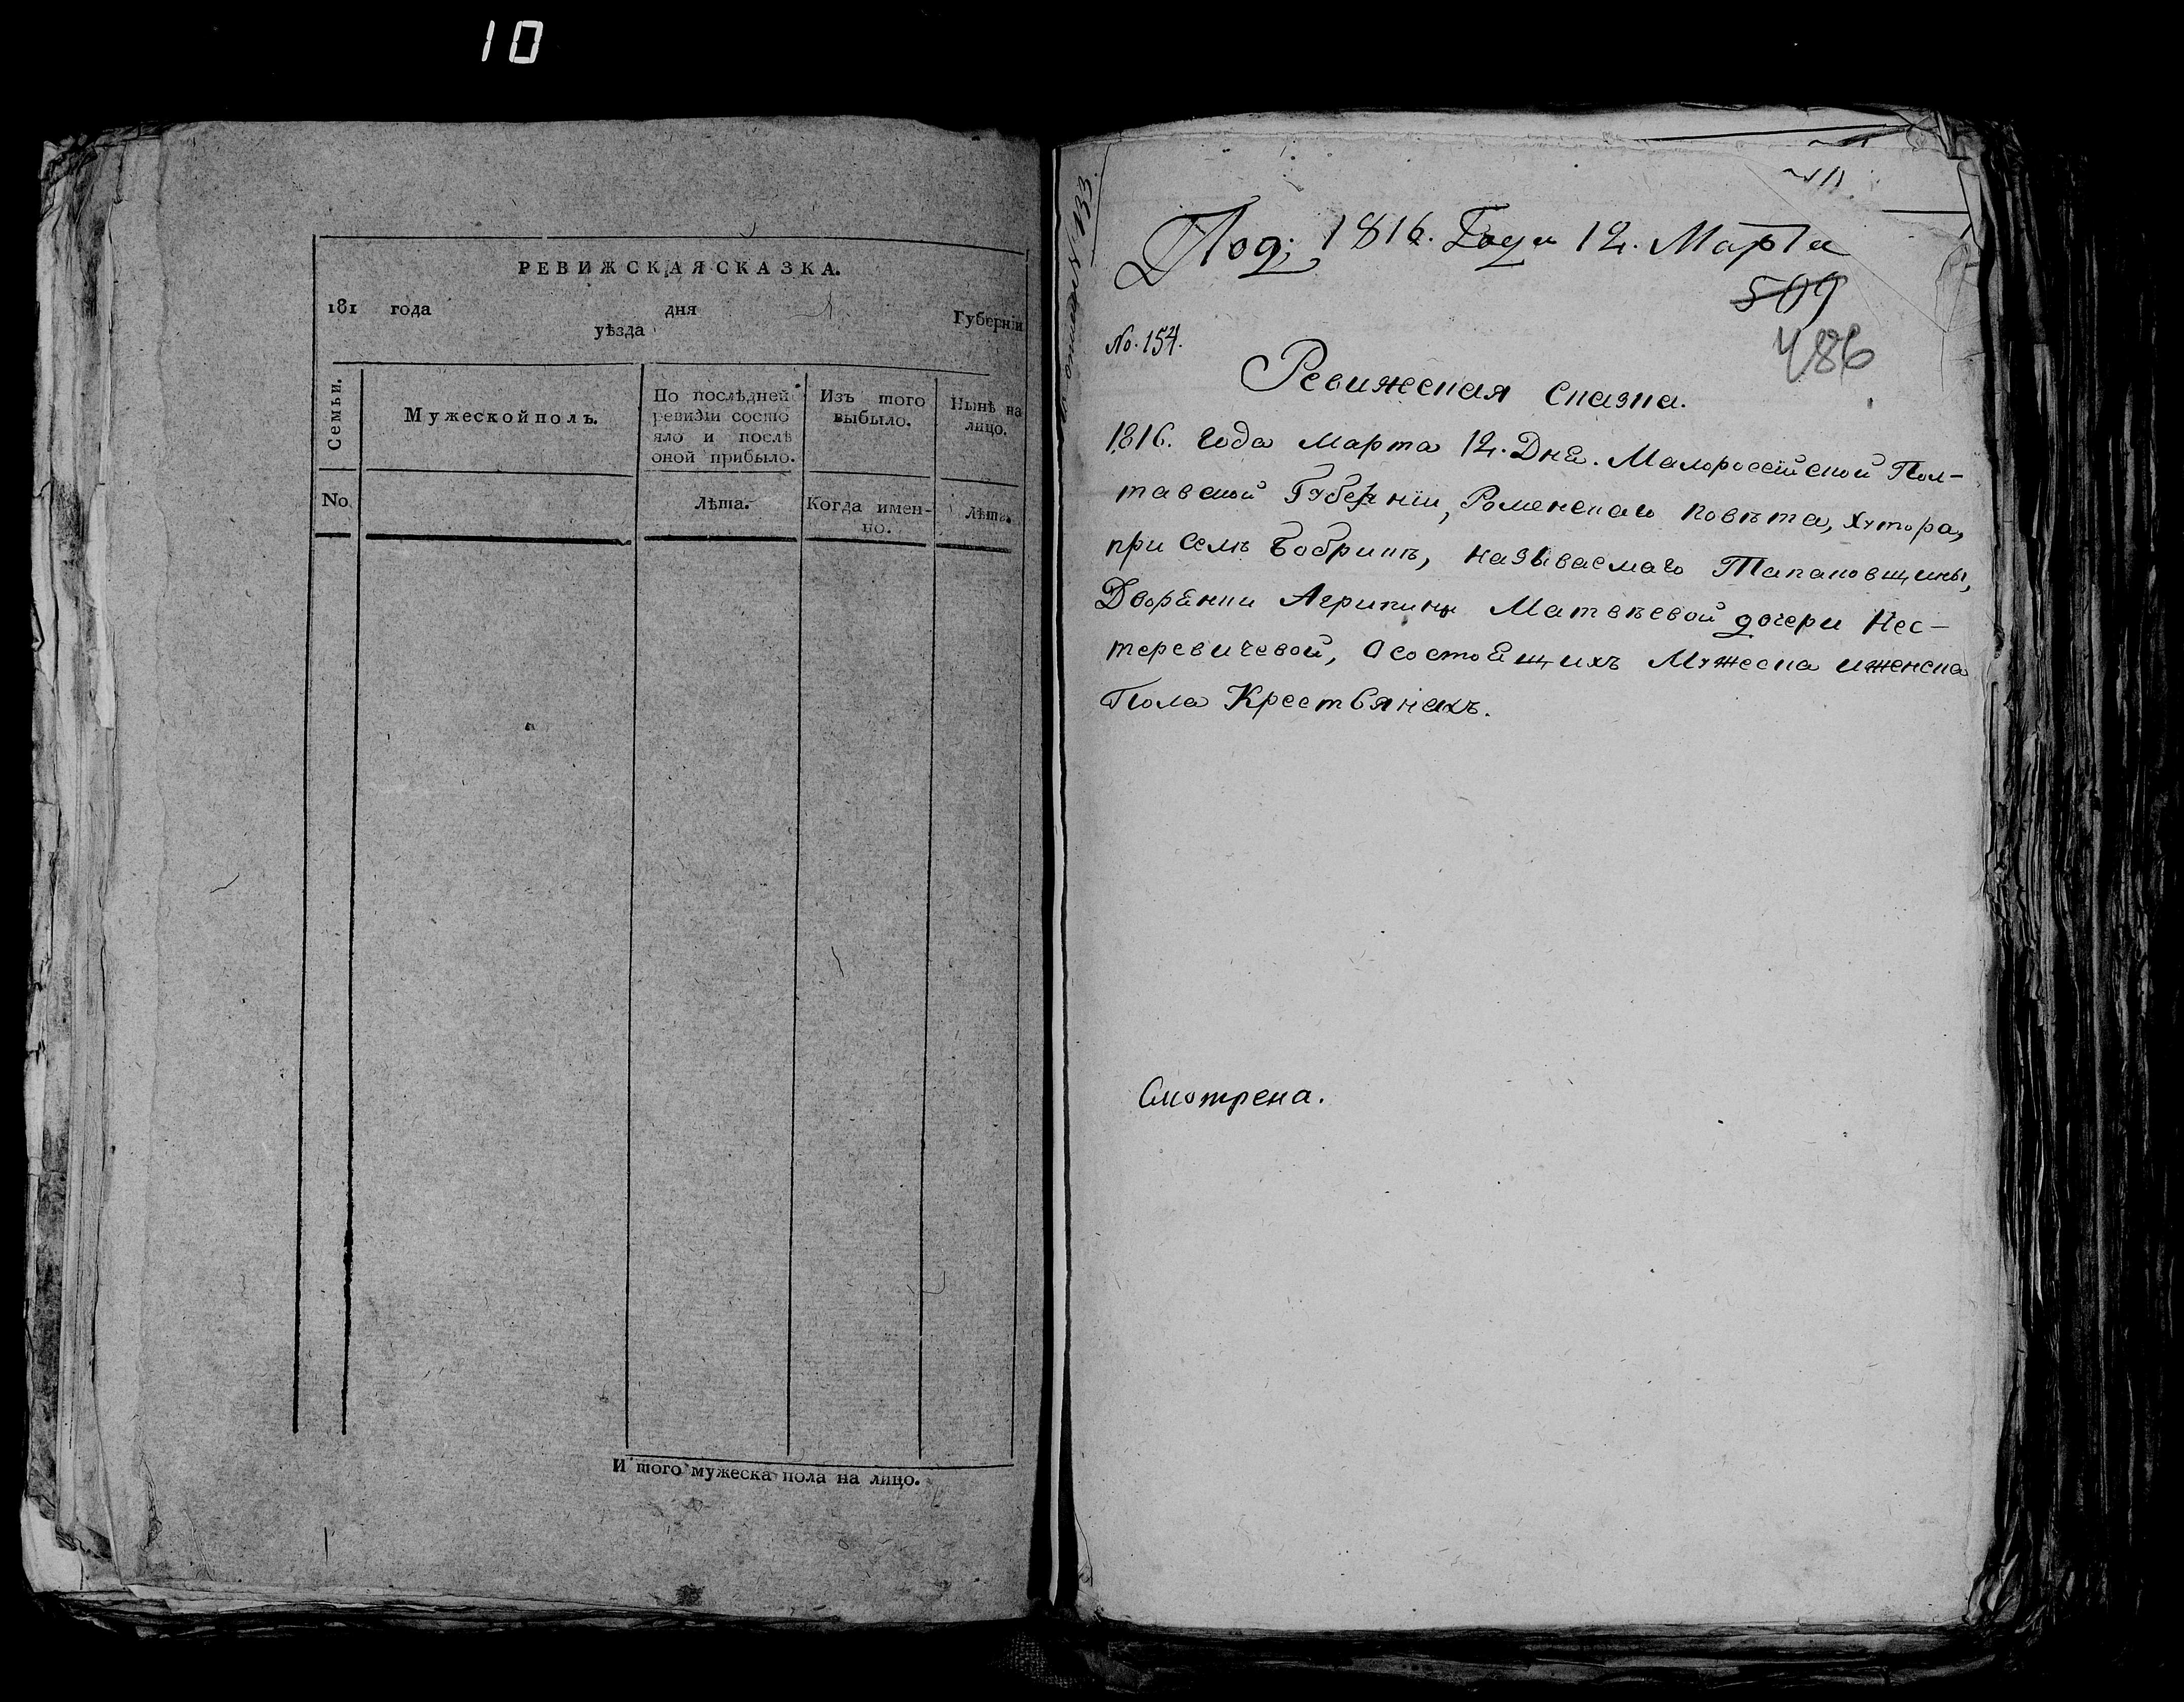 10
РЕВИЖСКАЯ СКАЗКА.
181 года дня Губерніи
уѣзда
Семьи.
Мужеской полъ.
По послѣдней
ревизіи состо
яло и послѣ
оной прибыло.
Изъ того
выбыло.
Нынѣ на
лицо.
No.
Лѣта.
Когда имен-
но.
Лѣта.
И того мужеска пола на лицо.
Под: 1816. Года 12. Марта
509
486
No. 154.
Ревижская Сказка.
1816. Года Марта 12. Дня. Малороссійской Пол-
тавской Губерніи, Роменскаго повѣта, хутора,
при Селѣ Бобрикѣ, называемаго Тапановщины,
Дворянки Агрипины Матвѣевой дочери Нес-
теревичевой, Осостоящихъ Мужеска иженска
Пола Крестьянахъ.
Смотрена.